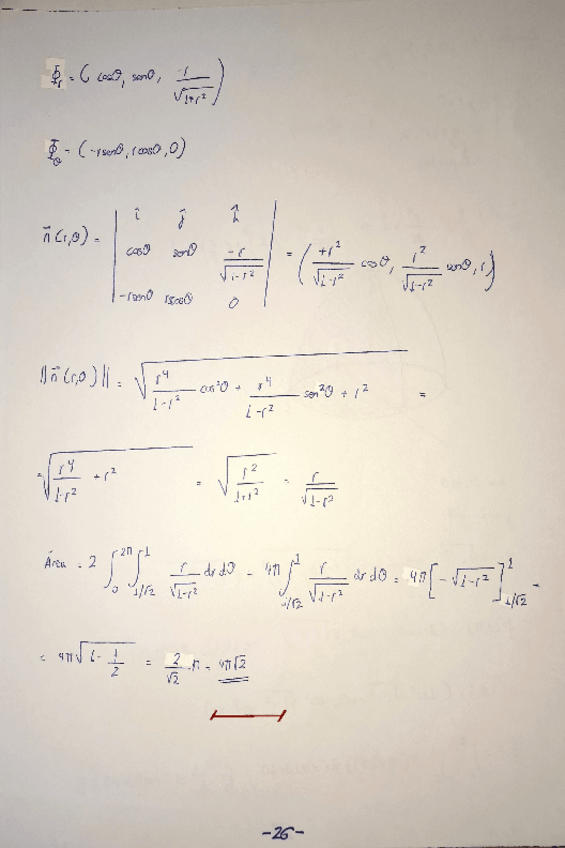 Φ_r = (cosθ, senθ, -r/√(1+r²))
Φ_θ = (-rsenθ, rcosθ, 0)
n⃗(r,θ) = | î ĵ k̂ ; cosθ senθ -r/√(1-r²) ; -rsenθ rcosθ 0 | = (+r²/√(1-r²) cosθ, r²/√(1-r²) senθ, r)
||n⃗(r,θ)|| = √(r⁴/(1-r²) cos²θ + r⁴/(1-r²) sen²θ + r²) =
= √(r⁴/(1-r²) + r²) = √(r²/(1+r²)) = r/√(1-r²)
Área = 2 ∫₀^2π ∫_1/√2^1 r/√(1-r²) dr dθ = 4π ∫_1/√2^1 r/√(1-r²) dr dθ = 4π[-√(1-r²)]_1/√2^1 =
= 4π√(1-1/2) = 2/√2 π = 4π√2
-26-